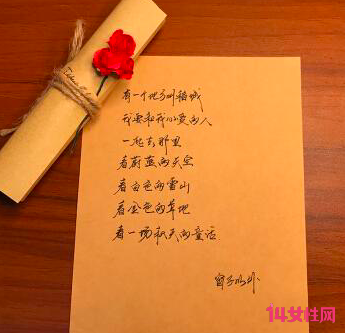 有一个地方叫稻城
我要和我心爱的人
一起去那里
看蔚蓝的天空
看白色的雪山
看金色的草地
看一场秋天的童话
14女性网